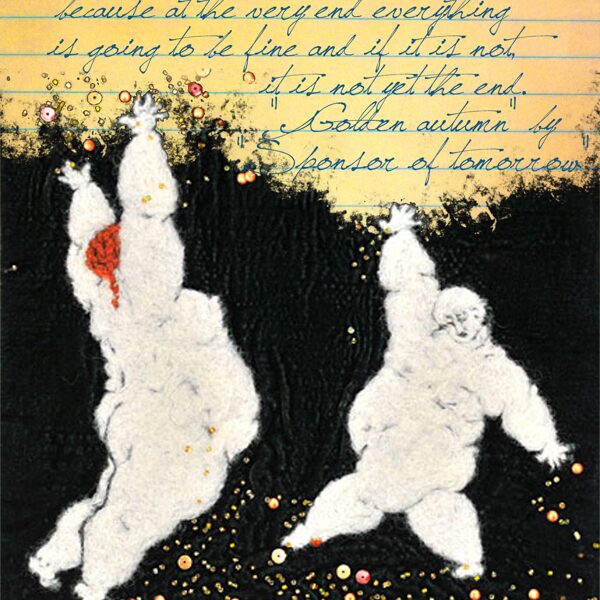 because at the very end everything
is going to be fine and if it is not,
it is not yet the end.
"Golden autumn" by
"Sponsor of tomorrow"